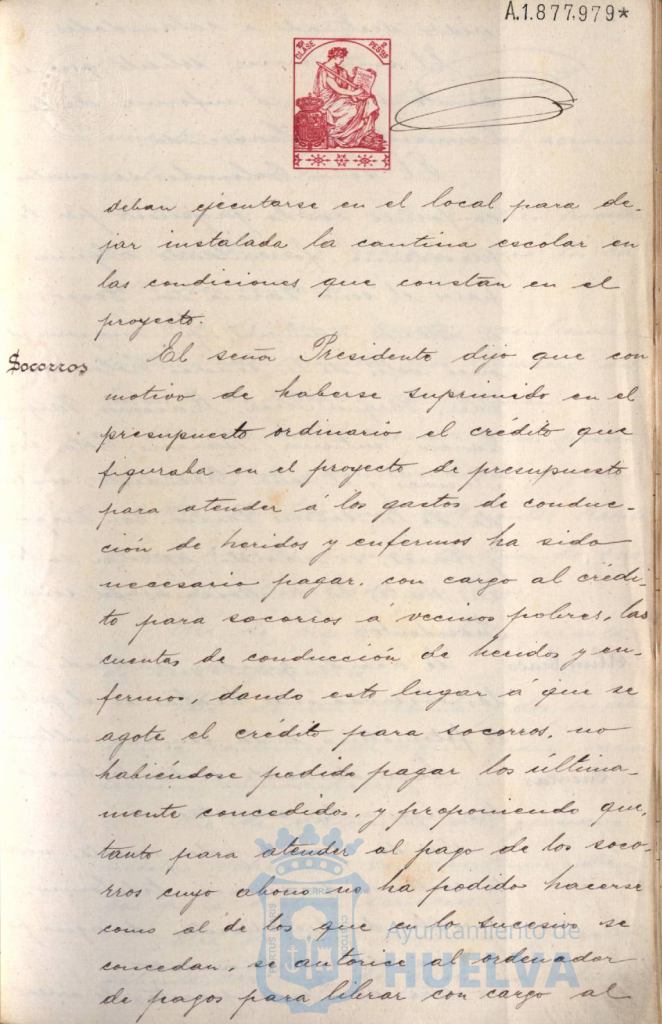 A.1.877,979*
10ª CLASE
2 PESTAS
deban ejecutarse en el local para de-
jar instalada la cantina escolar en
las condiciones que constan en el
proyecto.
Socorros
El señor Presidente dijo que con
motivo de haberse suprimido en el
presupuesto ordinario el crédito que
figuraba en el proyecto de presupuesto
para atender á los gastos de conduc-
ción de heridos y enfermos ha sido
necesario pagar, con cargo al crédi-
to para socorros á vecinos pobres, las
cuentas de conducción de heridos y en-
fermos, dando esto lugar á que se
agote el crédito para socorros, no
habiéndose podido pagar los última-
mente concedidos, y proponiendo que,
tanto para atender al pago de los soco-
rros cuyo abono no ha podido hacerse
como al de los que en lo sucesivo se
concedan, se autorice al ordenador
de pagos para librar con cargo al
Ayuntamiento de
HUELVA